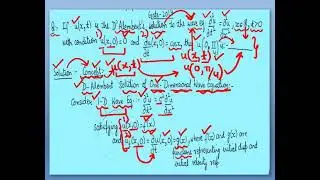 Gate-2014
Q: If u(x,t) is the D'Alembert's solution to the wave eq ∂²u/∂t² = ∂²u/∂x², x∈R, t>0
with condition u(x,0)=0 and ∂u/∂t(x,0)=cosx, the u(0,π/4) is
u(x,t)
u(0,π/4)
Solution - Concept: u(x,t)
D-Alembert Solution of One-Dimensional Wave Equation:
Consider 1-D Wave Eq:- ∂²u/∂t² = c² ∂²u/∂x²
satisfying u(x,0)=f(x)
and u_t(x,0)=∂u/∂t(x,0)=g(x), where f(x) and g(x) are
functions representing initial disp and
initial velocity resp